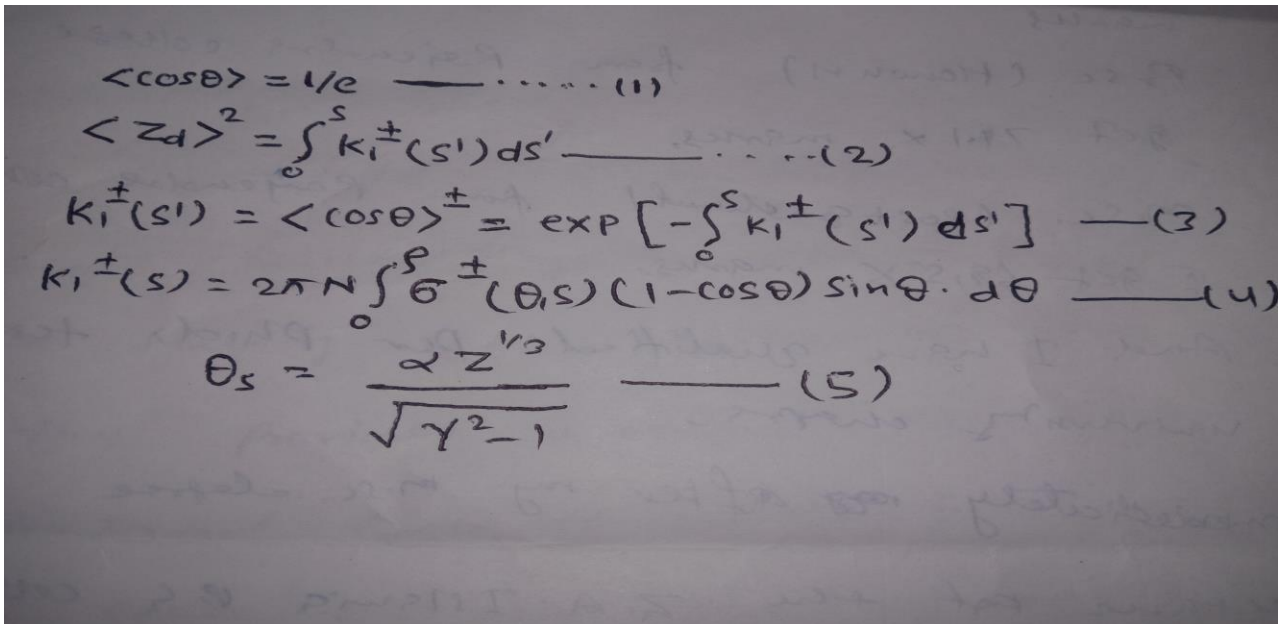 <cosθ> = 1/e — ...... (1)
<Zd>² = ∫₀ˢ K₁±(s') ds' — .....(2)
K₁±(s') = <cosθ>± = exp [-∫₀ˢ K₁±(s') ds'] —(3)
K₁±(s) = 2πN ∫₀ᵖ σ±(θ,s) (1-cosθ) sinθ. dθ —(4)
θs = αZ^1/3 / √γ²-1 —(5)